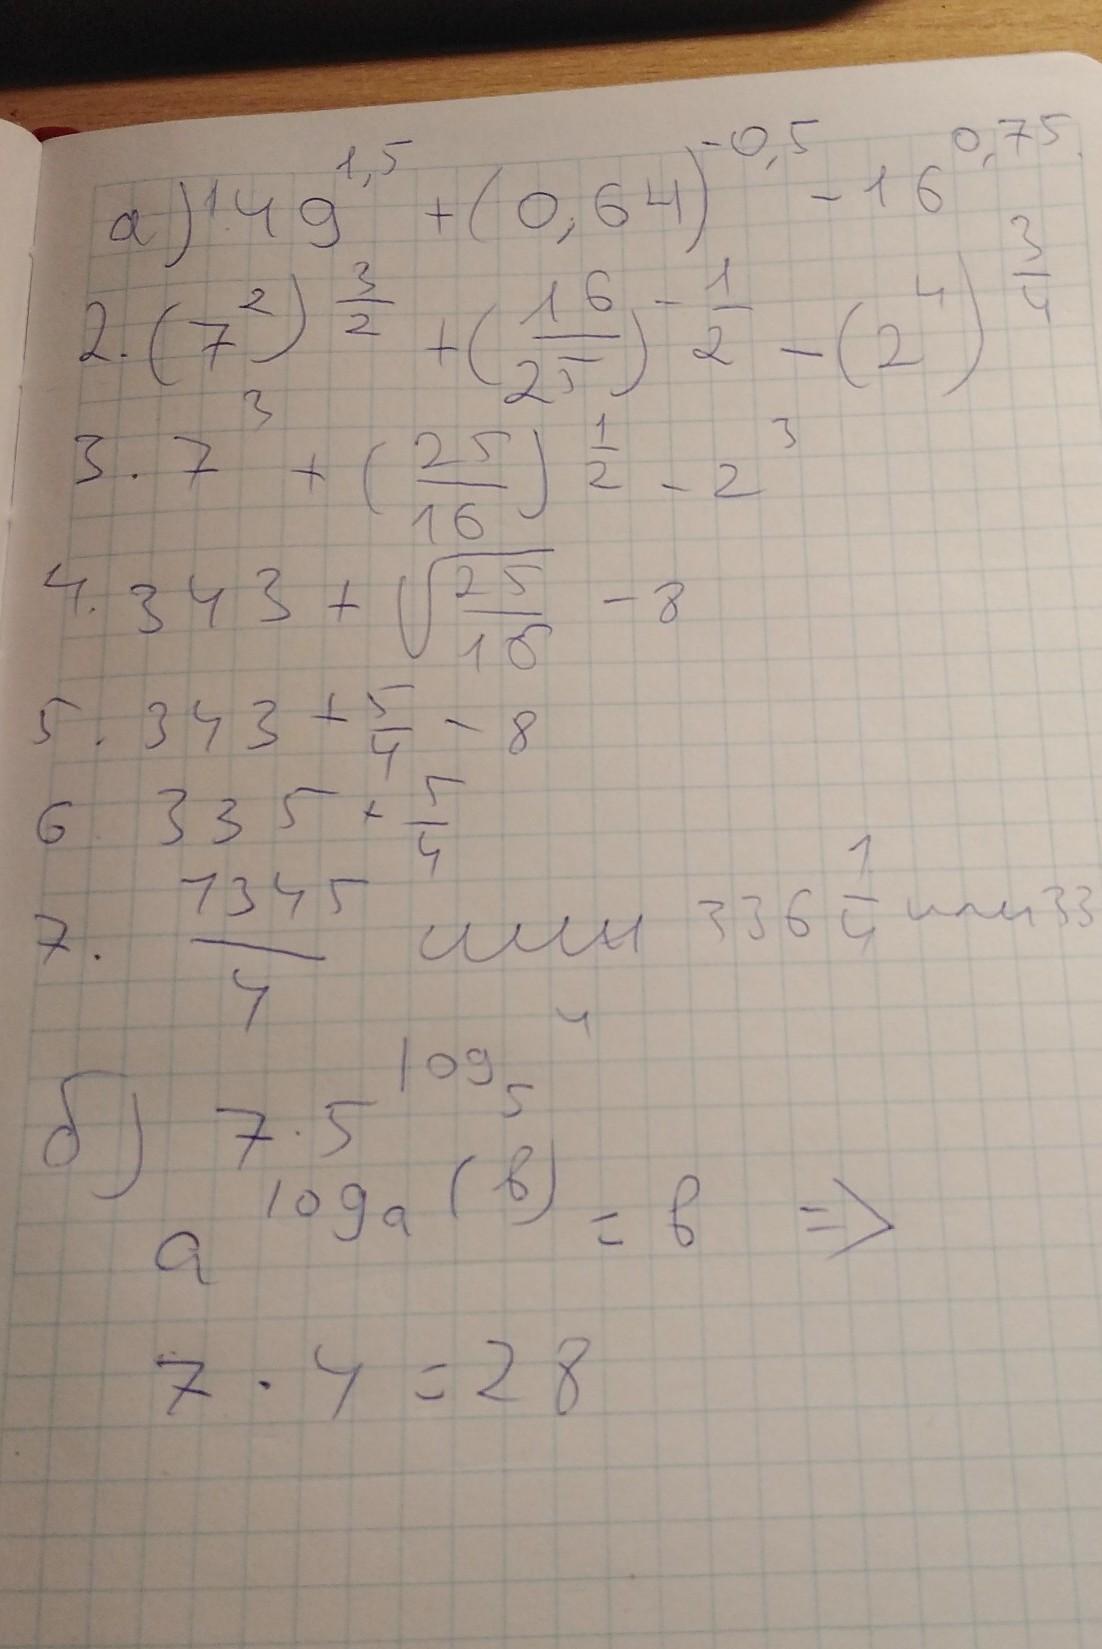 а) 1. 49^1,5 + (0,64)^-0,5 - 16^0,75
2. (7^2)^3/2 + (16/25)^-1/2 - (2^4)^3/4
3. 7^3 + (25/16)^1/2 - 2^3
4. 343 + √25/16 - 8
5. 343 + 5/4 - 8
6 335 + 5/4
7. 1345/4 или 336 1/4 или 33
б) 7 · 5^log_5 4
a^log_a (b) = b =>
7 · 4 = 28